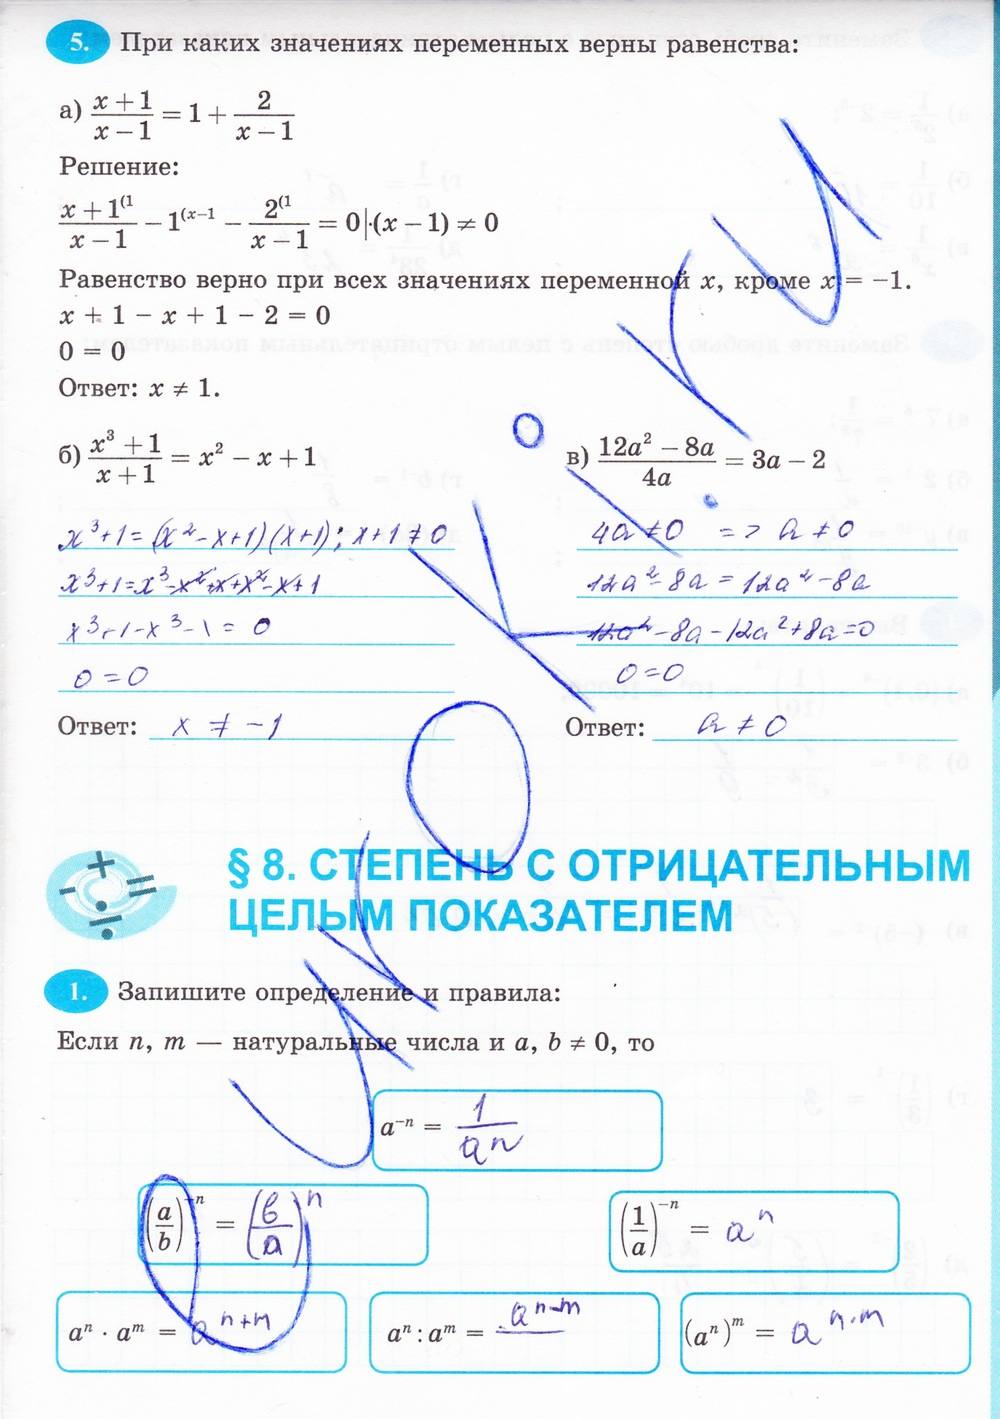 5. При каких значениях переменных верны равенства:
а) (x + 1)/(x − 1) = 1 + 2/(x − 1)
Решение:
(x + 1⁽¹)/(x − 1) − 1⁽ˣ⁻¹ − 2⁽¹/(x − 1) = 0|·(x − 1) ≠ 0
Равенство верно при всех значениях переменной x, кроме x = −1.
x + 1 − x + 1 − 2 = 0
0 = 0
Ответ: x ≠ 1.
б) (x³ + 1)/(x + 1) = x² − x + 1
x³+1 = (x² − x+1)(x+1); x+1 ≠ 0
x³+1 = x³ − x² + x + x² − x + 1
x³+1 − x³ − 1 = 0
0 = 0
Ответ: x ≠ −1
в) (12a² − 8a)/4a = 3a − 2
4a ≠ 0 => a ≠ 0
12a² − 8a = 12a² − 8a
12a² − 8a − 12a² + 8a = 0
0 = 0
Ответ: a ≠ 0
§ 8. СТЕПЕНЬ С ОТРИЦАТЕЛЬНЫМ
ЦЕЛЫМ ПОКАЗАТЕЛЕМ
1. Запишите определение и правила:
Если n, m — натуральные числа и a, b ≠ 0, то
a⁻ⁿ = 1/aⁿ
(a/b)⁻ⁿ = (в/a)ⁿ
(1/a)⁻ⁿ = aⁿ
aⁿ · aᵐ = aⁿ⁺ᵐ
aⁿ : aᵐ = aⁿ⁻ᵐ
(aⁿ)ᵐ = aⁿ·ᵐ